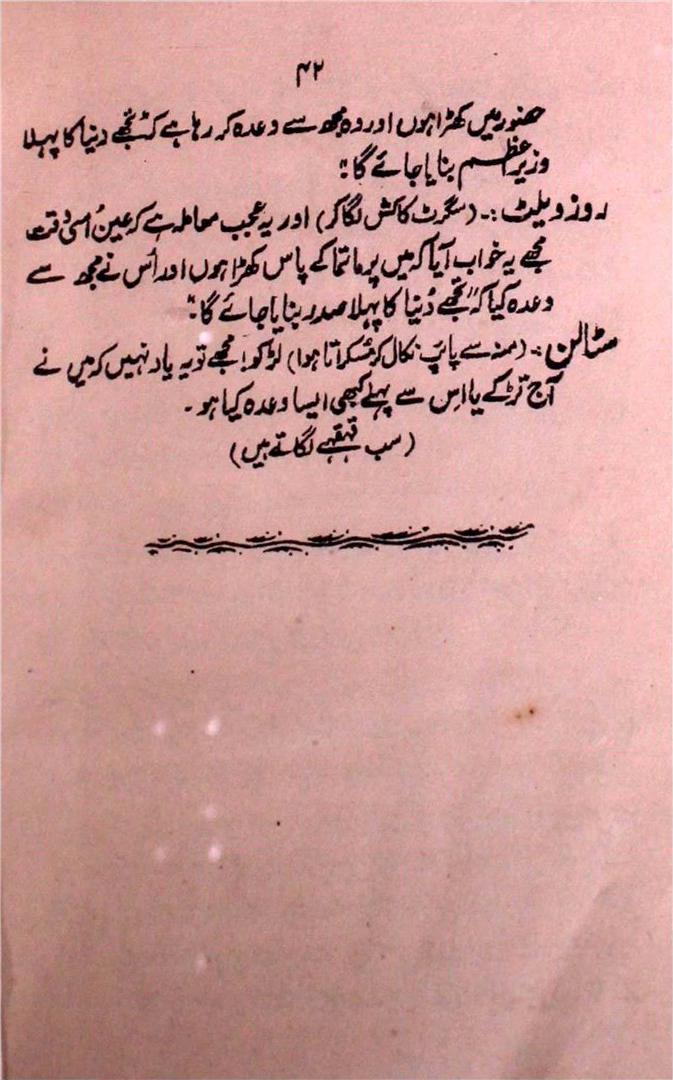 ۴۲
حضور میں کھڑا ہوں اور وہ مجھ سے وعدہ کر رہا ہے کہ "تجھے دنیا کا پہلا
وزیر اعظم بنایا جائے گا"۔
روزویلٹ :۔ (سگرٹ کا کش لگا کر) اور یہ عجب معاملہ ہے کہ عین اُسی وقت
مجھے یہ خواب آیا کہ میں پرماتما کے پاس کھڑا ہوں اور اُس نے مجھ سے
وعدہ کیا کہ "تجھے دُنیا کا پہلا صدر بنایا جائے گا"۔
سٹالن :۔ (منہ سے پائپ نکال کر مُسکراتا ہوا) لڑکو! مجھے تو یہ یاد نہیں کہ میں نے
آج تڑکے یا اِس سے پہلے کبھی ایسا وعدہ کیا ہو۔
(سب قہقہے لگاتے ہیں)